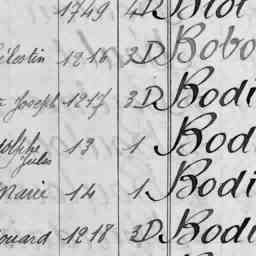 1749 4D Blot
élestin 1216 3D Bobo
Joseph 1217 3D Bodi
dolphe Jules 13 1 Bodi
Marie 14 1 Bodi
ouard 1218 3D Bodi